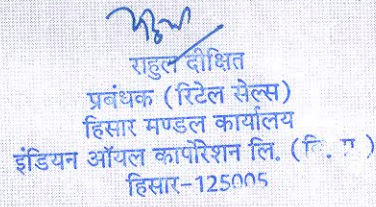 राहुल दीक्षित
प्रबंधक (रिटेल सेल्स)
हिसार मण्डल कार्यालय
इंडियन ऑयल कार्पोरेशन लि.
हिसार-125005